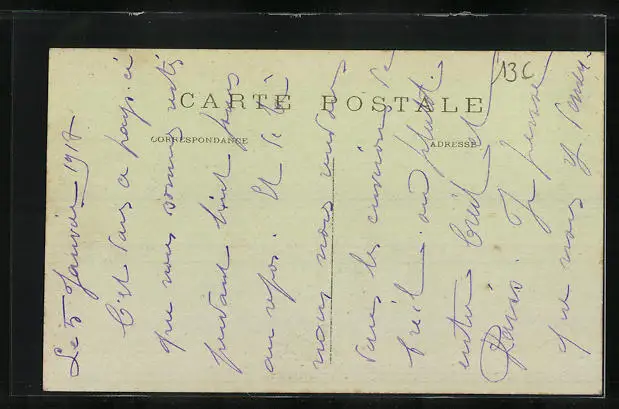 CARTE POSTALE
CORRESPONDANCE
ADRESSE
13C
Le 5 Janvier 1917
C'est dans ce pays-ci
que nous sommes restés
pendant huit jours
au repos. Et de là
nous nous rendons
dans les environs de
Creil ou plutôt
entre Creil et
Paris. Je pense
que nous y